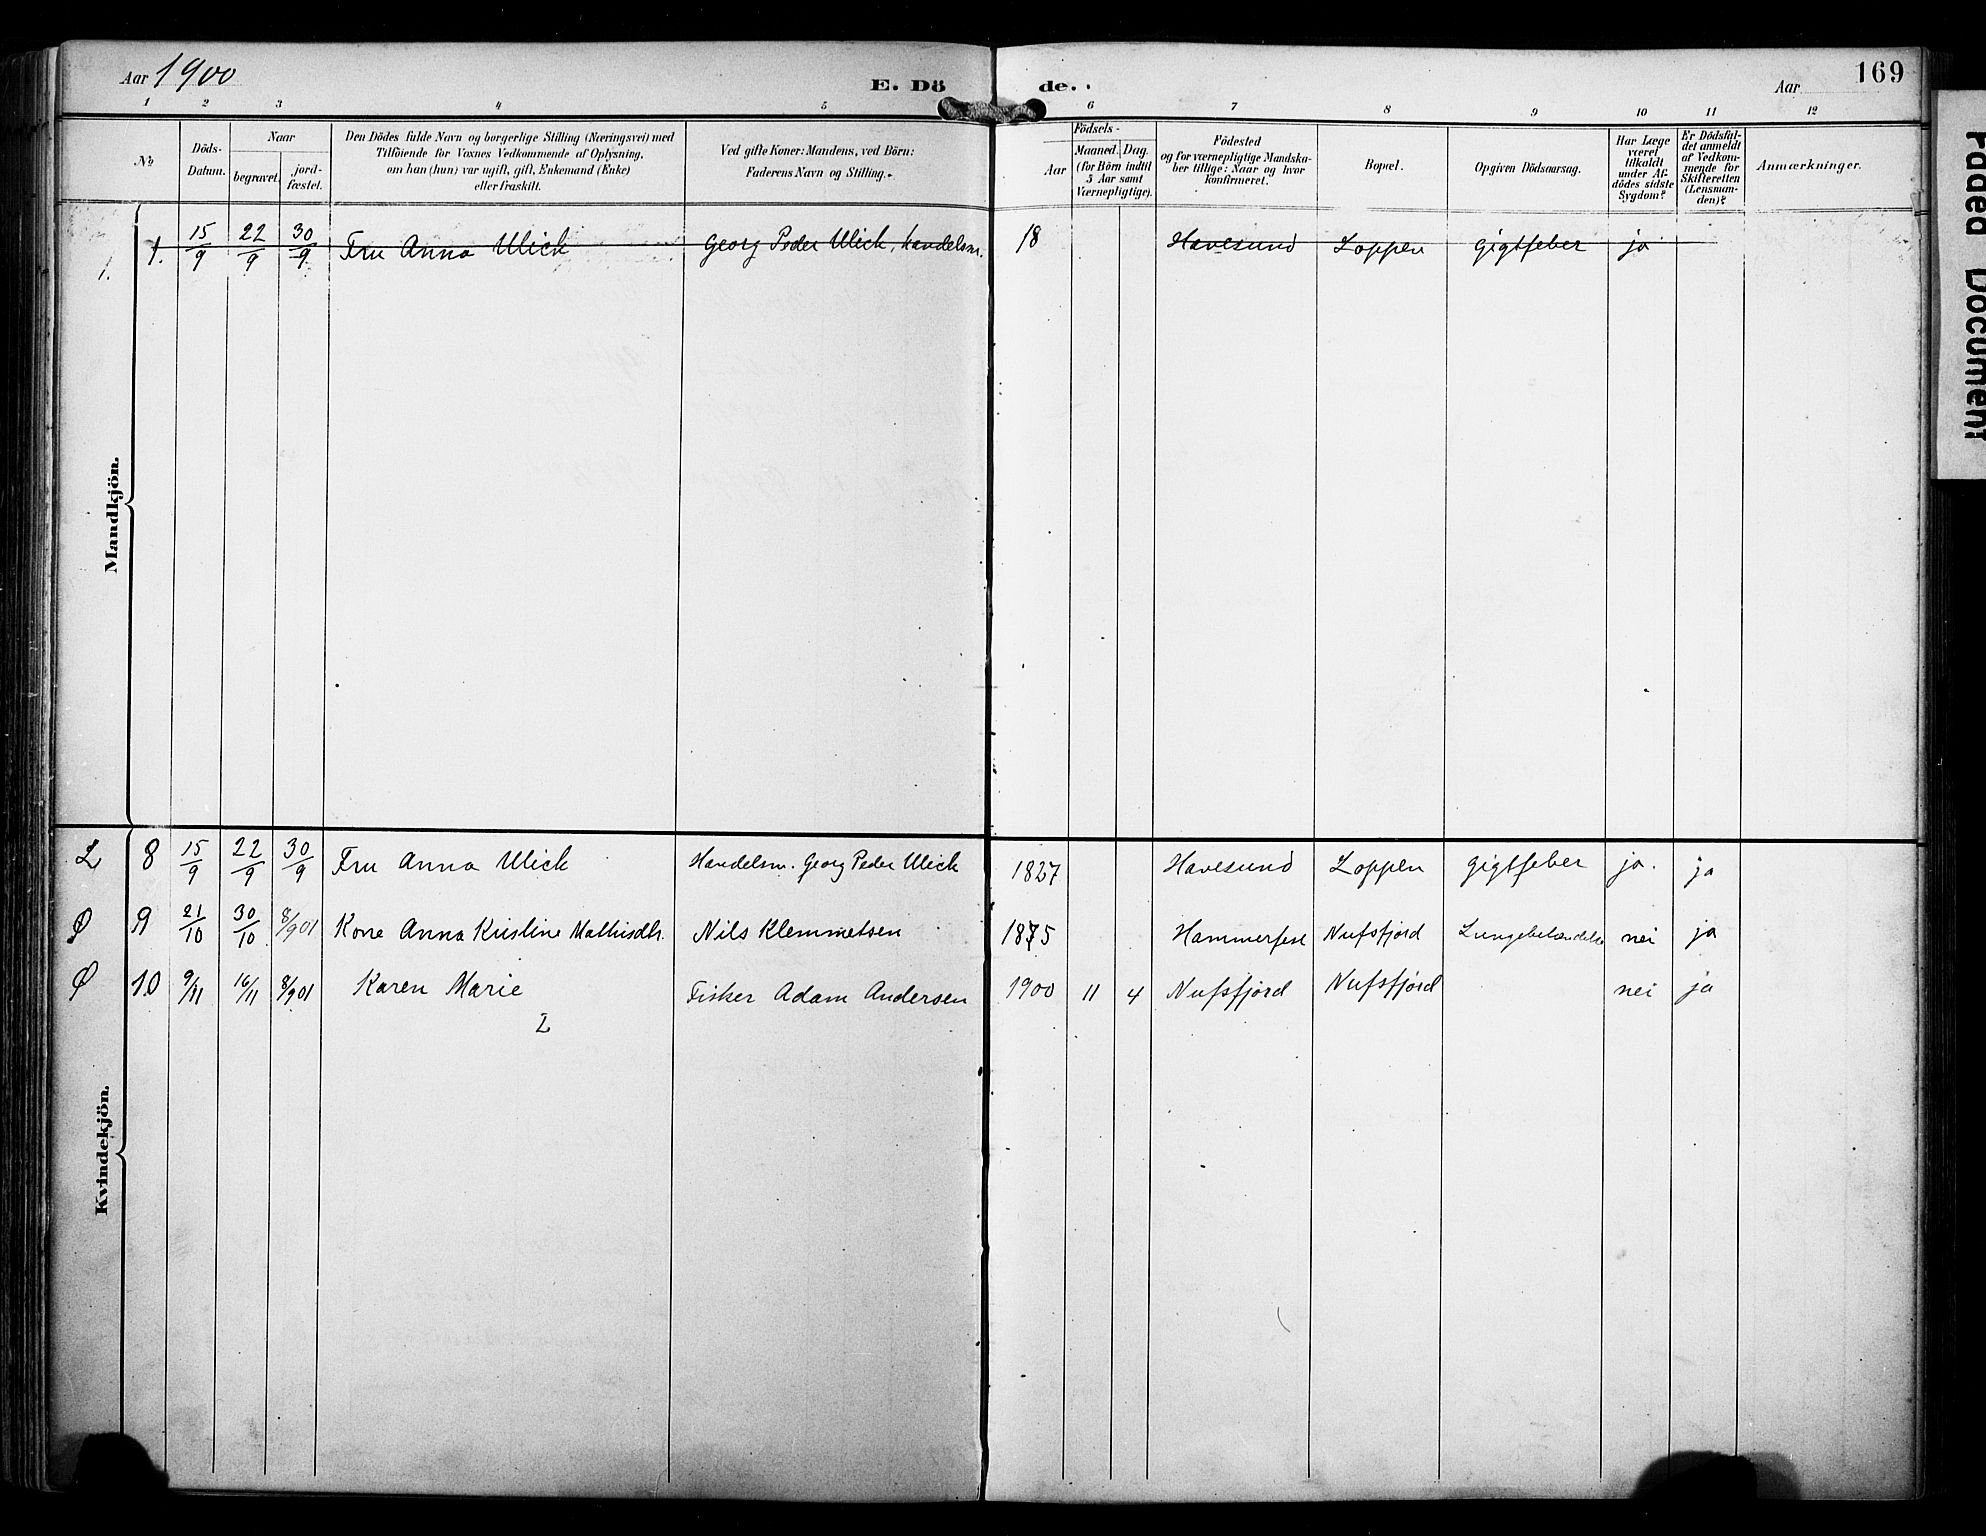 Aar 1900 E. Döde. Aar 169
1 2 3 4 5 6 7 8 9 10 11 12
No
Döds-Datum.
Naar
begravet.
jordfæstet.
Den Dödes fulde Navn og borgerlige Stilling (Næringsvei) med
Tilföiende for Voxnes Vedkommende af Oplysning,
om han (hun) var ugift, gift, Enkemand (Enke)
eller fraskilt.
Ved gifte Koner: Mandens, ved Börn:
Faderens Navn og Stilling.
Födsels-
Aar
Maaned. Dag.
(for Börn indtil
5 Aar samt
Værnepligtige).
Födested
og for værnepligtige Mandska-
ber tillige: Naar og hvor
konfirmeret.
Bopæl.
Opgiven Dödsaarsag.
Har Læge
været
tilkaldt
under Af-
dödes sidste
Sygdom?
Er Dödsfal-
det anmeldt
af Vedkom-
mende for
Skifteretten
(Lensman-
den)?
Anmærkninger.
1. 1. 15/9 22/9 30/9 Fru Anna Ulich Georg Peder Ulich, handelsm. 18 Havesund Loppen gigtfeber ja
Mandkjön.
L 8 15/9 22/9 30/9 Fru Anna Ulich Handelsm. Georg Peder Ulich 1827 Havesund Loppen gigtfeber ja. ja
Ø 9 21/10 30/10 8/9 01 Kone Anna Kristine Mathisdtr. Nils Klemmetsen 1875 Hammerfest Nufsfjord nei ja
Ø 10 9/11 16/11 8/9 01 Karen Marie Fisker Adam Andersen 1900 11 4 Nufsfjord Nufsfjord nei ja
L
Kvindekjön.
Faded Document